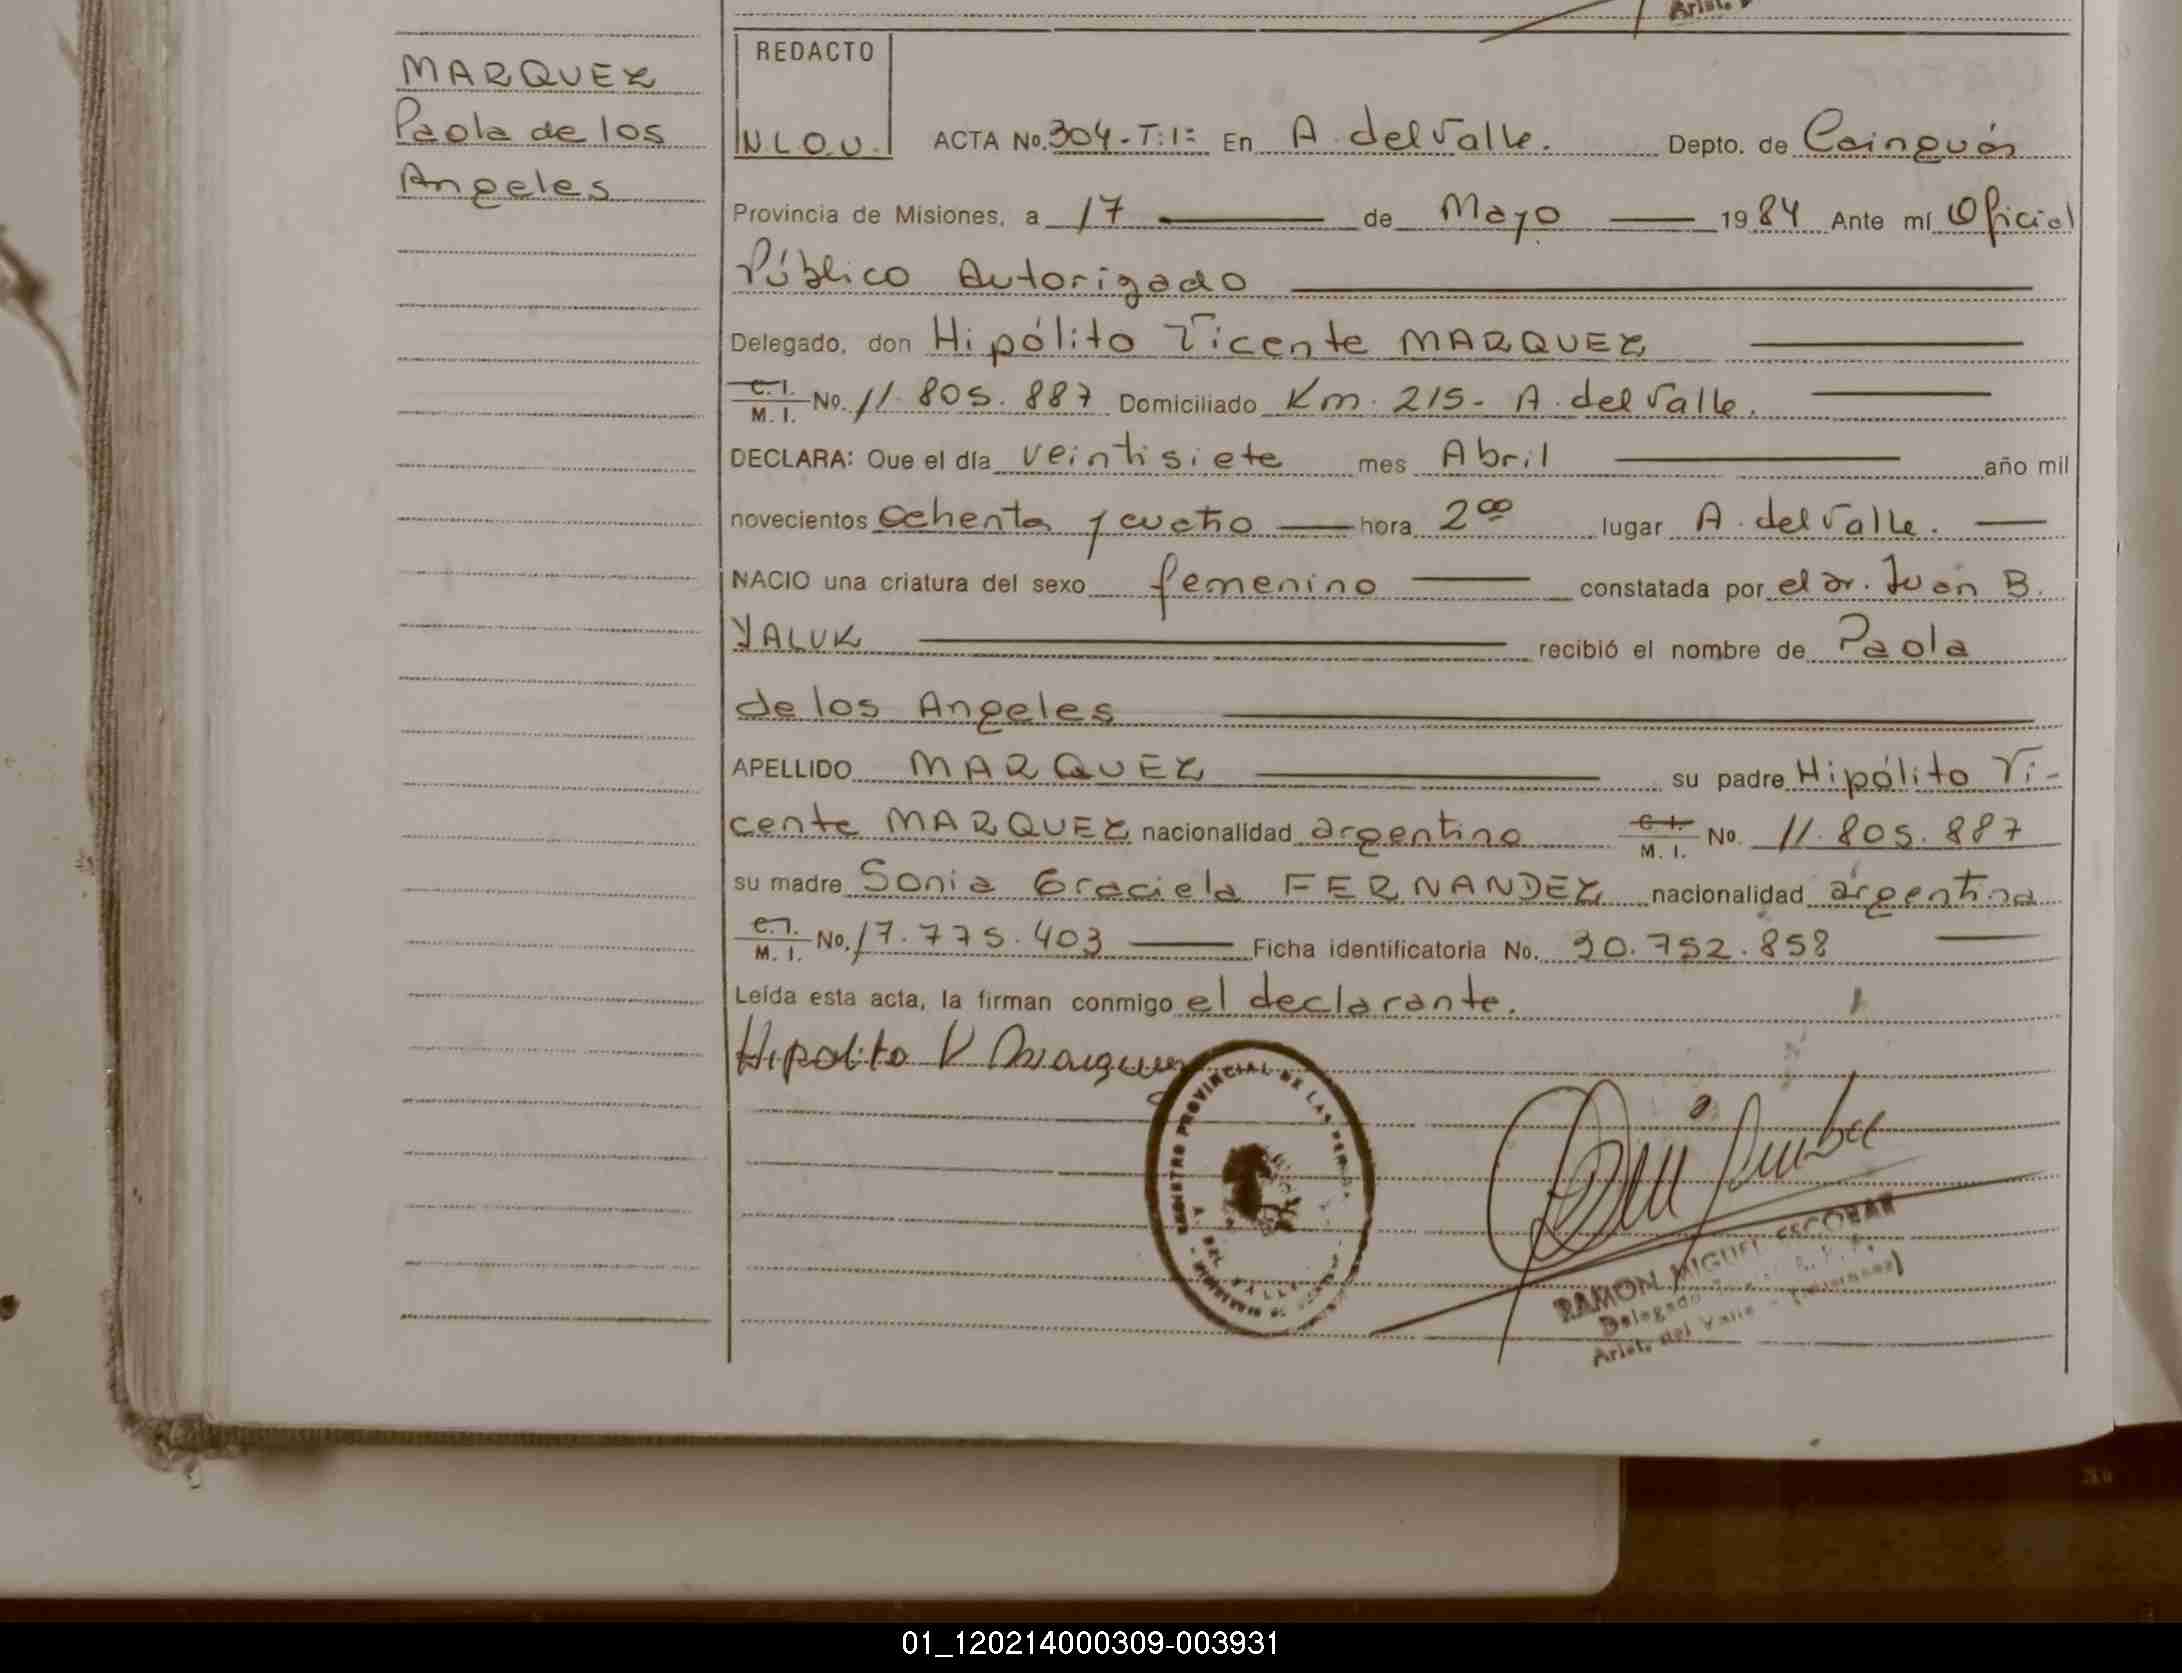 Arist.
MARQUEZ
Paola de los
Angeles
REDACTO
N.L.O.U.
ACTA No. 304-T:1= En A. del Valle. Depto. de Cainguás
Provincia de Misiones, a 17 de Mayo 1984 Ante mí Oficial
Público Autorizado
Delegado, don Hipólito Vicente MARQUEZ
C. I. M. I. No. 11.805.887 Domiciliado Km. 215- A. del Valle.
DECLARA: Que el día veintisiete mes Abril año mil
novecientos ochenta y cuatro hora 2⁰⁰ lugar A. del Valle.
NACIO una criatura del sexo femenino constatada por el Dr. Juan B.
YALUK recibió el nombre de Paola
de los Angeles
APELLIDO MARQUEZ su padre Hipólito Vi-
cente MARQUEZ nacionalidad argentino C. I. M. I. No. 11.805.887
su madre Sonia Graciela FERNANDEZ nacionalidad argentina
C. I. M. I. No. 17.775.403 Ficha identificatoria No. 30.752.858
Leída esta acta, la firman conmigo el declarante.
Hipolito V Marquez
REGISTRO PROVINCIAL DE LAS PERSONAS
A. DEL VALLE
RAMON MIGUEL ESCOBAR
Delegado
Arist. del Valle - (Misiones)
01_120214000309-003931